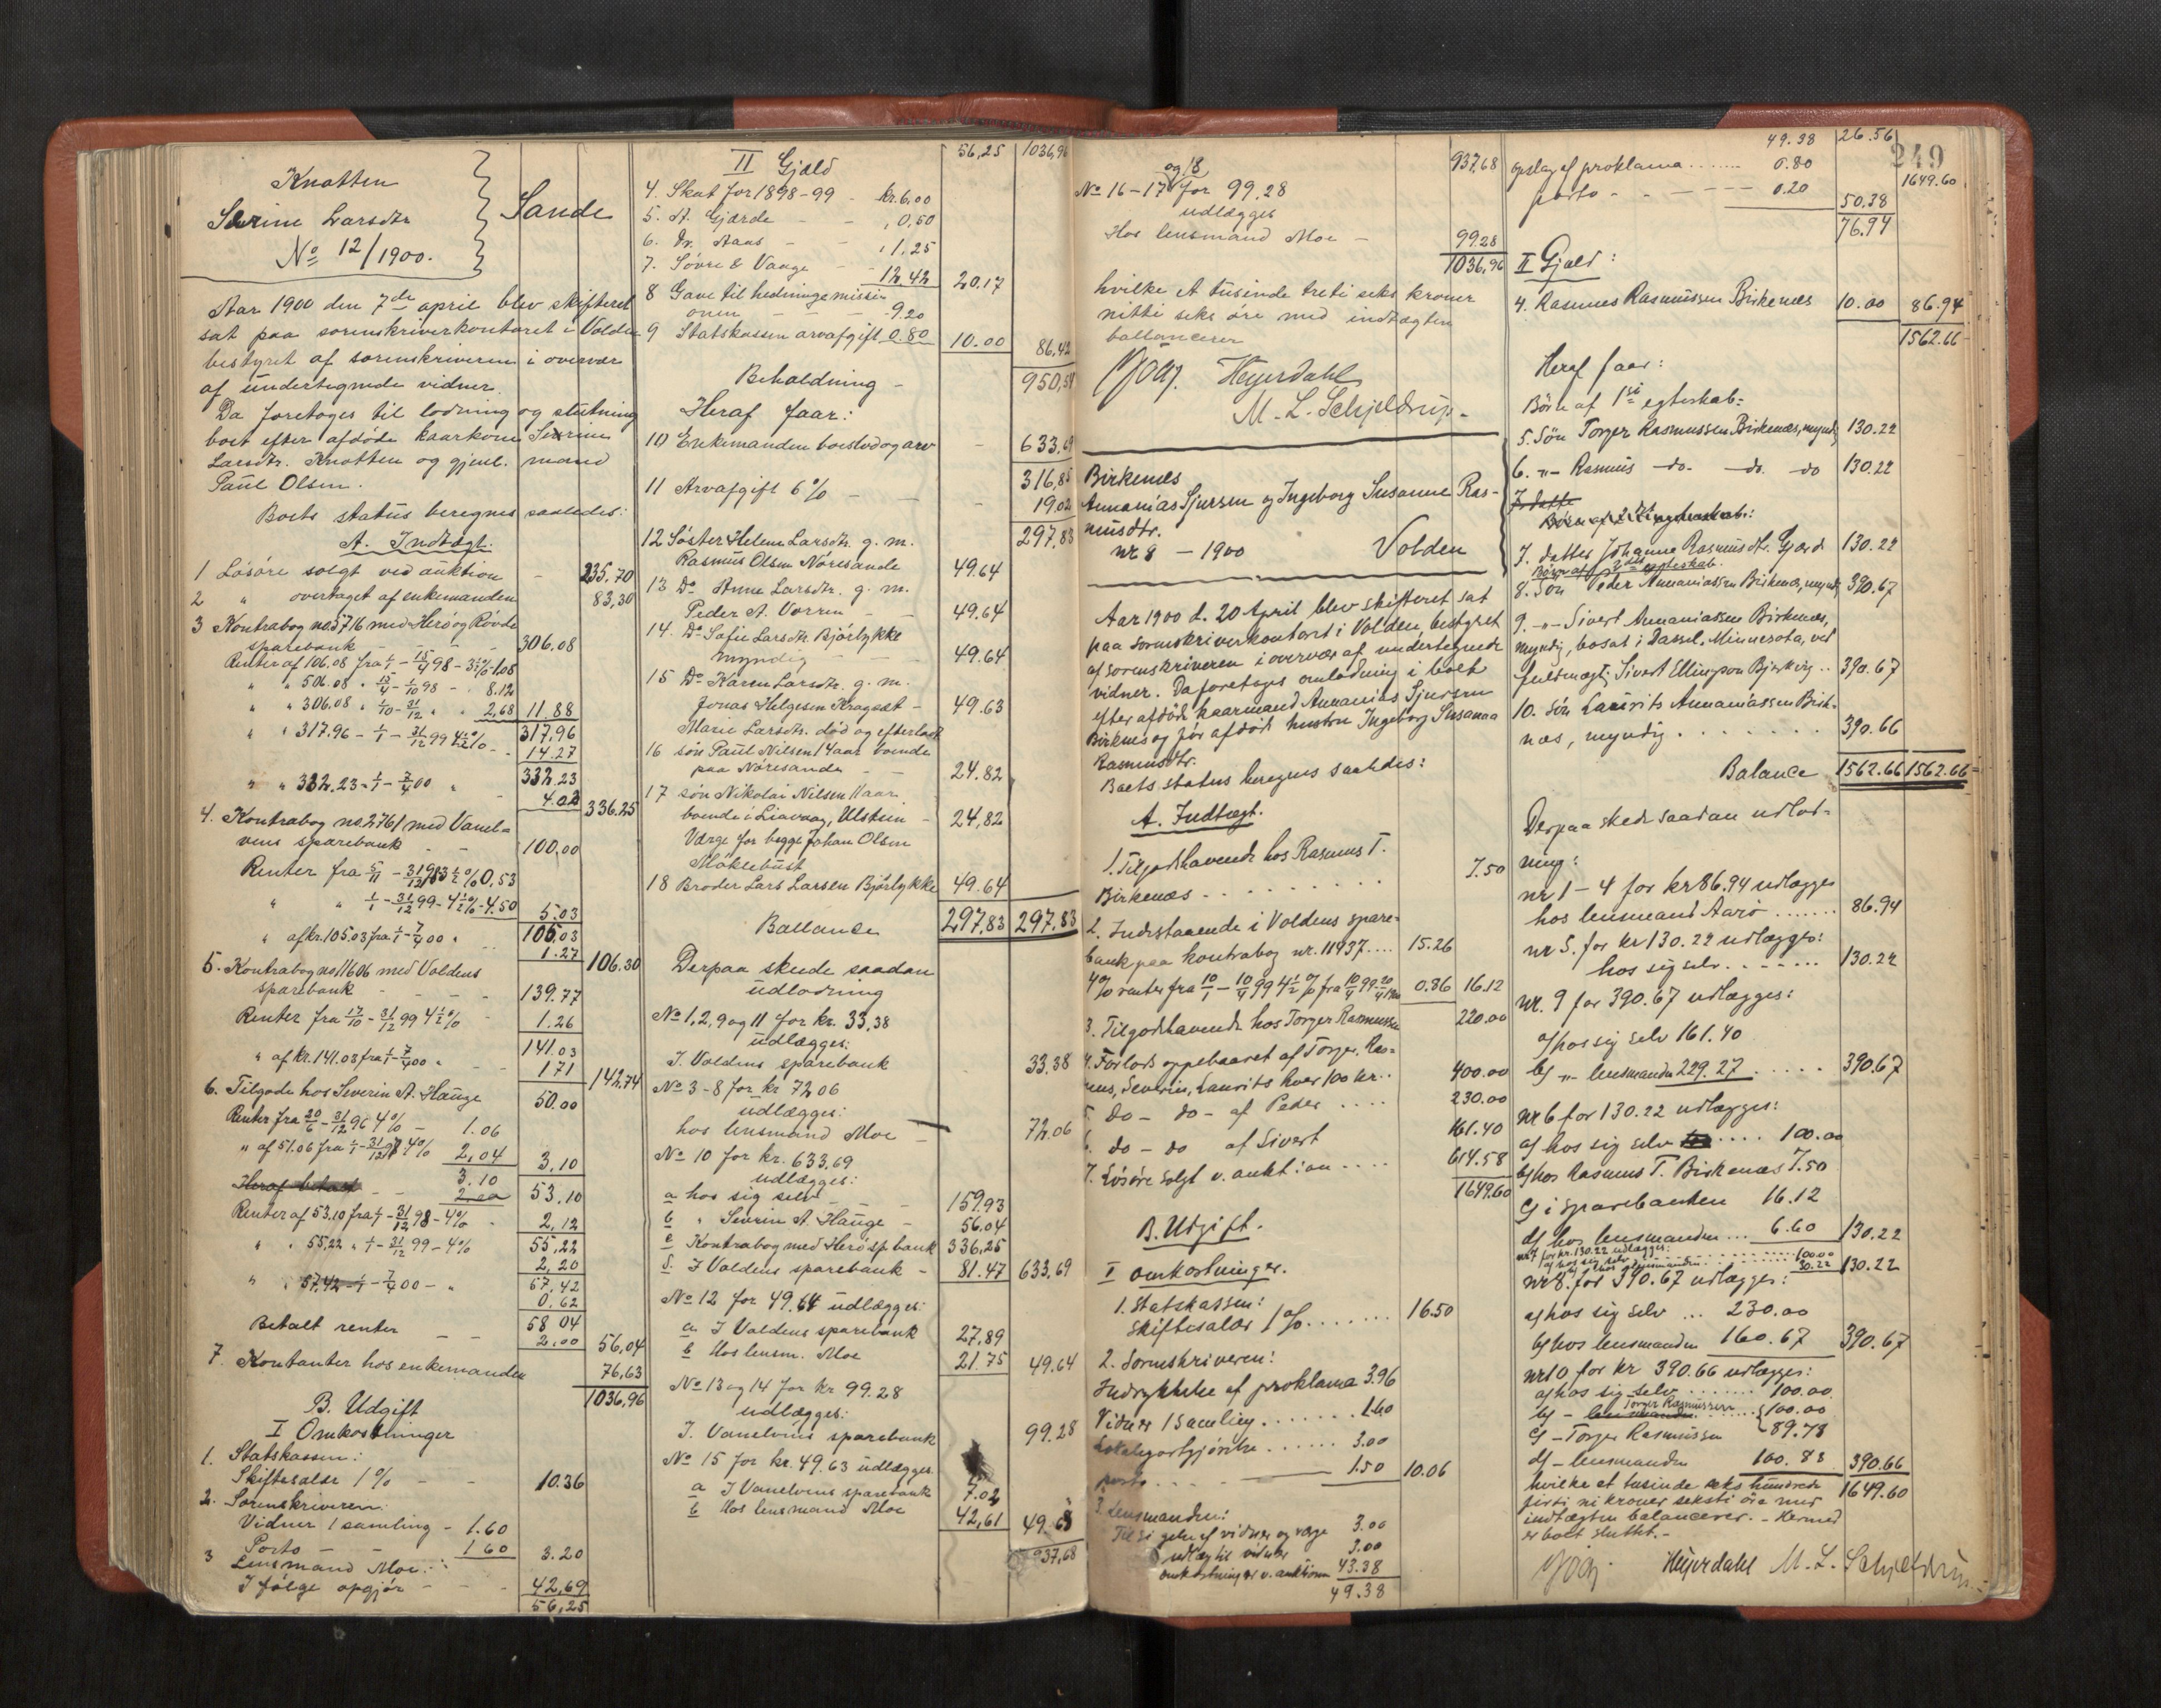 Knotten
Severine Larsdtr
Sande
No 12/1900.
Aar 1900 den 7de april blev skifteret
sat paa sorenskriverkontoret i Volden
bestyret af sorenskriveren i overvær
af undertegnede vidner.
Da foretoges til lodning og slutning
boet efter afdøde kaarkone Severine
Larsdtr. Knotten og gjenl. mand
Paul Olsen.
Boets status beregnes saaledes:
A. Indtægt.
1 Løsøre solgt ved auktion - 235,70
2 " overtaget af enkemanden 83,30
3 Kontrabog no 5716 med Herø og Røvde
sparebank - - - 306.08
Renter af 106.08 fra 1/1 - 15/4 98 - 3½% - 1.08
" " 506.08 " 15/4 - 1/10 98 - " 8.12
" " 306.08 " 1/10 - 31/12 " " 2,68 11.88
317.96
" " 317.96 - 1/1 - 31/12 99 4½% - - 14.27
332.23
" " 332.23 - 1/1 - 7/4 00 " - 4.02 336.25
4. Kontrabog no. 2761 med Vanel-
vens sparebank - - 100,00
Renter fra 5/11 - 31/12 98 3½% 0,53
" " 1/1 - 31/12 99 - 4½% - 4.50 5.03
105.03
" af kr. 105.03 fra 1/1 - 7/4 00 " - 1.27 106.30
5. Kontrabog no 11606 med Voldens
sparebank - - - 139.77
Renter fra 17/10 - 31/12 99 4½% - 1.26
141.03
" af kr. 141.03 fra 1/1 - 7/4 00 " - 1 71 142,74
6. Tilgode hos Severin A. Hauge 50.00
Renter fra 20/6 - 31/12 96 4% - 1.06
" af 51.06 fra 1/1 - 31/12 97 4% 2,04 3,10
3.10
Heraf betalt - - 2.00 53.10
Renter af 53.10 fra 1/1 - 31/12 98 - 4% " 2,12
55,22
" " 55,22 " 1/1 - 31/12 99 - 4% 2,20
57,42
" " 57,42 - 1/1 - 7/4 00 - " 0,62
58 04
Betalt renter - - 2.00 56,04
7. Kontanter hos enkemanden 76,63
1036,96
B. Udgift
I Omkostninger
1. Statskassen:
Skiftesalær 1% - - 10.36
2. Sorenskriveren:
Vidner 1 samling - 1.60
Porto - - 1 60 3.20
3 Lensmand Moe:
I følge opgjør - - - 42,69
56,25
56,25 1036,96
II Gjæld
4. Skat for 1898-99 - kr. 6.00
5. A. Gjærde - - " 0,50
6. Dr. Aaas - - " 1,25
7. Søvre & Vange - - 12.42 20.17
8 Gave til hedningemissi-
onen - - - 9.20
9 Statskassen arvafgift 0.80 10.00 86,42
Beholdning - 950,54
Heraf faar:
10 Enkemanden boeslod og arv - 633,69
316,85
11 Arvafgift 6% - - - 19,02
297,83
12 Søster Helene Larsdtr. g. m.
Rasmus Olsen Nøresande 49.64
13 Do Anne Larsdtr. g. m.
Peder A. Vorren - - 49.64
14. Do Sofie Larsdtr Bjørlykke
myndig - - - 49.64
15 Do Karen Larsdtr. g. m.
Jonas Helgesen Kragset - 49.63
Marie Larsdtr. død og efterladt
16 søn Paul Nilsen 14 aar boende
paa Nøresande - - 24.82
17 søn Nikolai Nilsen 11 aar
boende i Liavaag, Ulstein - 24,82
Værge for begge Johan Olsen
Møklebust
18 Broder Lars Larsen Bjørlykke 49.64
Ballance 297,83 297.83
Derpaa skede saadan
udlodning
No 1, 2, 9 og 11 for kr. 33,38
udlægges:
I. Voldens sparebank 33.38
No 3-8 for kr 72 06
udlægges:
hos lensmand Moe - 72.06
No 10 for kr. 633.69
udlægges:
a hos sig selv - - 159.93
b " Severin A. Hauge - 56.04
c Kontrabog med Herø sp. bank 336,25
d. I Voldens sparebank - 81.47 633,69
No 12 for 49.64 udlægges:
a I Voldens sparebank 27,89
b Hos lensm. Moe 21.75 49.64
No 13 og 14 for kr. 99.28
udlægges:
I. Vanelvens sparebank 99.28
No 15 for kr. 49.63 udlægges
a I Vanelvens sparebank 7.02
b Hos lensmand Moe 42,61 49.63
937,68
937,68
No 16-17 og 18 for 99.28
udlægges
Hos lensmand Moe - 99.28
1036,96
hvilke et tusinde treti seks kroner
nitti seks øre med indtægten
ballancerer
Heyerdahl
M. L. Schjeldrup.
Birkenes
Annanias Sjursen og Ingeborg Susanne Ras-
musdtr.
nr 8 - 1900 Volden
Aar 1900 d. 20 April blev skifteret sat
paa sorenskriverkontoret i Volden, bestyret
af sorenskriveren i overvær af undertegnede
vidner. Da foretoges omlodning i boet
efter afdøde kaarmand Annanias Sjursen
Birkenes og før afdøde hustru Ingeborg Susanna
Rasmusdtr.
Boets status beregnes saaledes:
A. Indtægt.
1. Tilgodehavende hos Rasmus T.
Birkenæs - - - 7.50
2. Indestaaende i Voldens spare-
bank paa kontrabog nr. 11937 .... 15.26
4% renter fra 10/1 - 10/4 99 4½% fra 10/4 99 - 20/4 1900 0.86 16.12
3. Tilgodehavende hos Torger Rasmussen 220.00
4. Forlods oppebaaret af Torger, Ras-
mus, Severin, Laurits hver 100 kr.. 400.00
5. do - do - af Peder .... 230.00
6. do - do af Sivert 161.40
7. Løsøre solgt v. auktion .... 614.58
1649.60
B. Udgift.
I omkostninger.
1. Statskassen:
Skiftesalær 1% ....... 16.50
2. Sorenskriveren:
Indrykkelse af proklama 3.96
Vidner 1 samling ....... 1.60
Lokalegodtgjørelse ...... 3.00
porto ... 1.50 10.06
3. Lensmanden:
Tilsigelse af vidner og værge 3.00
udlæg til vidner 3.00
omkostninger v. auktionen 43.38
49.38
249
49.38 26.56
opslag af proklama ...... 0.80 1649.60
porto - - - 0.20 50.38
76.94
II Gjæld:
4. Rasmus Rasmussen Birkenæs 10.00 86.94
1562.66
Heraf faar:
Børn af 1ste egteskab:
5. Søn Torger Rasmussen Birkenæs, myndig 130.22
6. -"- Rasmus -do- -do- do 130.22
7 datte
Børn af 2det egteskab:
7. datter Johanne Rasmusdtr. Gjærd 130.22
Børn af 2det egteskab.
8. Søn Peder Annaniassen Birkenæs, myndig 390.67
9. -"- Sivert Annaniassen Birkenæs,
myndig, bosat i Dassel, Minnesota, ved
fuldmægtig Sivert Ellingson Bjerkvig .. 390.67
10. Søn Laurits Annaniassen Birke-
næs, myndig ....... 390.66
Balance 1562.66 1562.66
Derpaa skede saadan udlod-
ning:
nr 1-4 for kr 86.94 udlægges
hos lensmand Aarø ...... 86.94
nr 5. for kr 130.22 udlægges:
hos sig selv ....... 130.22
nr. 9 for 390.67 udlægges:
a/ hos sig selv 161.40
b/ -"- lensmanden 229.27 ..... 390.67
nr 6 for 130.22 udlægges:
a/ hos sig selv .... 100.00
b/ hos Rasmus T. Birkenæs 7.50
c/ i sparebanken 16.12
d/ hos lensmanden ... 6.60 130.22
nr 7 for kr. 130.22 udlægges:
a/ hos sig selv 100.00
b/ hos lensmanden 30.22 130.22
nr 8. for 390.67 udlægges:
a/ hos sig selv ... 230.00
b/ hos lensmanden 160.67 390.67
nr 10 for kr 390.66 udlægges:
a/ hos sig selv ....... 100.00
b/ - lensmanden Torger Rasmussen 100.00
c/ - Torger Rasmussen 89.78
d/ - lensmanden 100.88 390.66
hvilke et tusinde seks hundrede 1649.60
firti ni kroner seksti øre med
indtægten balancerer. - Hermed
er boet sluttet.-
Heyerdahl M. L. Schjeldrup.